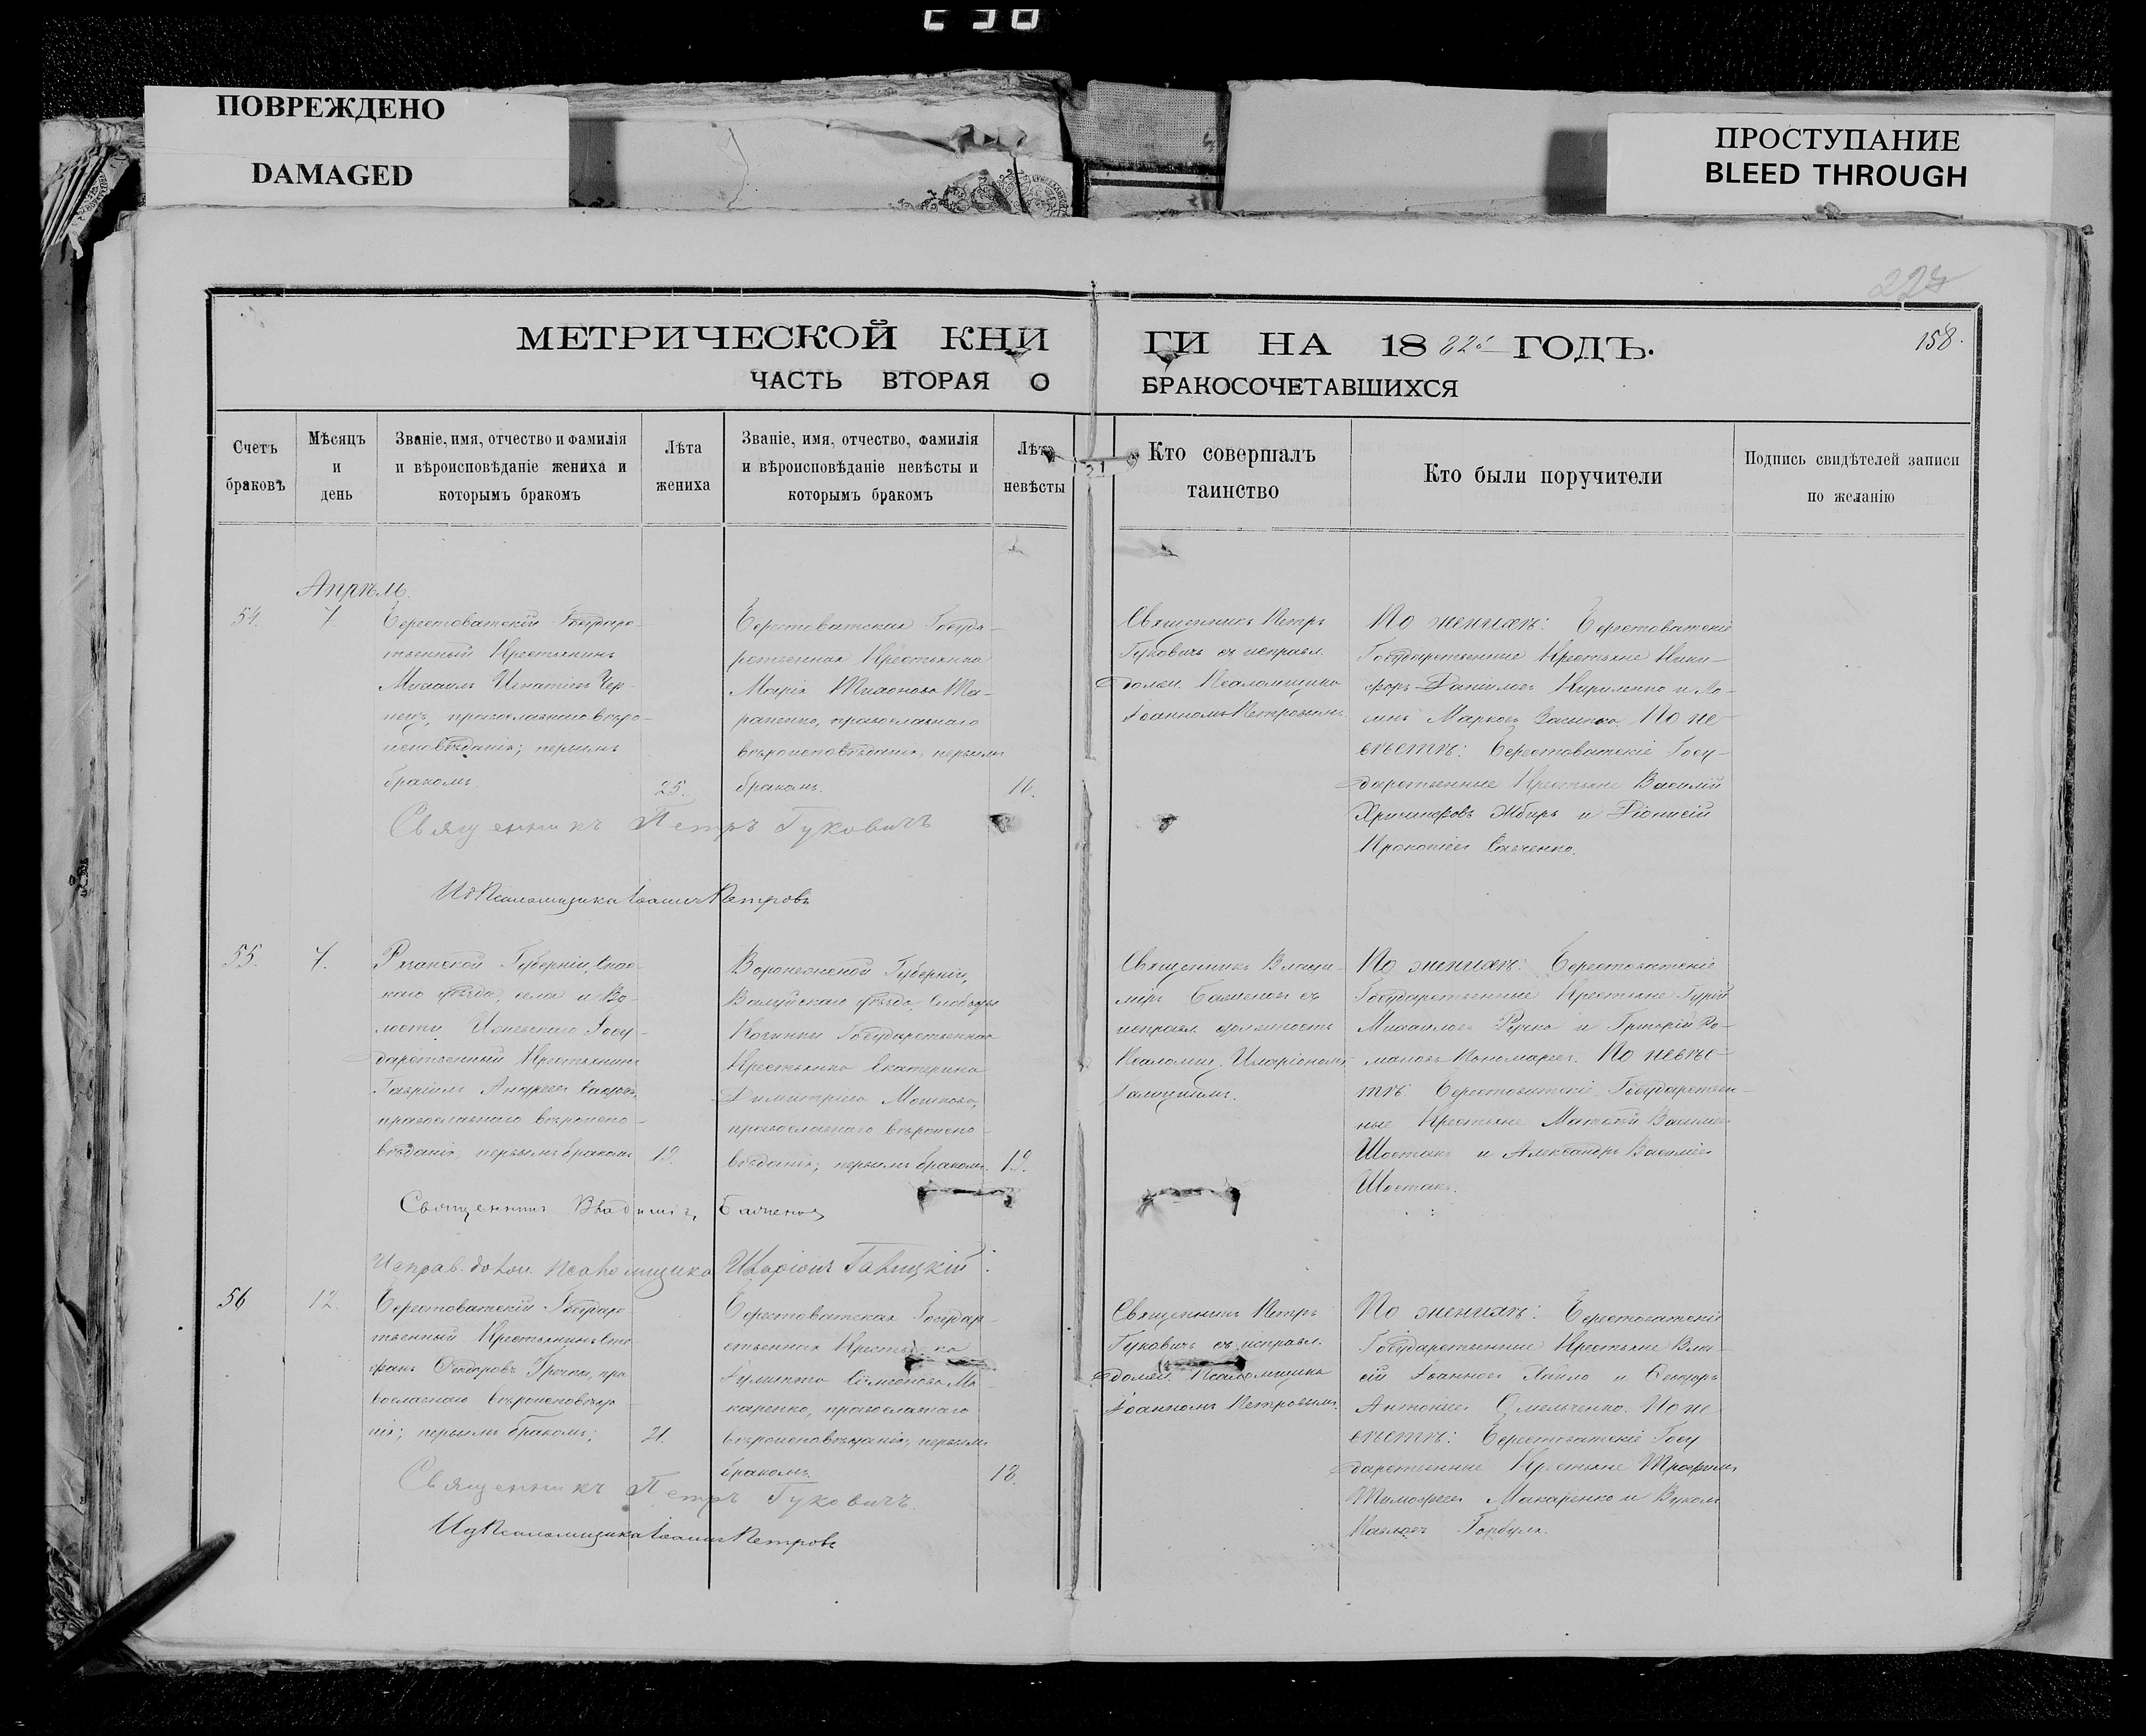 ПОВРЕЖДЕНО
DAMAGED
ПРОСТУПАНИЕ
BLEED THROUGH
МЕТРИЧЕСКОЙ КНИ
ГИ НА 1882й ГОДЪ.
158.
ЧАСТЬ ВТОРАЯ О
БРАКОСОЧЕТАВШИХСЯ
Счетъ
браковъ
Мѣсяцъ
и
день
Званіе, имя, отчество и фамилія
и вѣроисповѣданіе жениха и
которымъ бракомъ
Лѣта
жениха
Званіе, имя, отчество, фамилія
и вѣроисповѣданіе невѣсты и
которымъ бракомъ
Лѣта
невѣсты
Кто совершалъ
таинство
Кто были поручители
Подпись свидѣтелей записи
по желанію
Апрѣль.
54.
7
Берестоватскій Государс-
твенный Крестьянинъ
Михаилъ Игнатіевъ Чер-
нецъ, православнаго вѣро-
исповѣданія; первымъ
бракомъ.
25.
Берестоватская Госуда-
рственная Крестьянка
Марія Тихонова Та-
раненко, православнаго
вѣроисповѣданія, первымъ
бракомъ.
Священникъ Петръ
Гуковичъ съ исправл.
должн. Псаломщика
Іоанномъ Петровымъ.
По женихѣ: Берестоватскіе
Государственные Крестьяне Ники-
форъ Даніиловъ Кириленко и
Марковъ По не-
вѣстѣ: Берестоватскіе Госу-
дарственные Крестьяне Василій
Жбиръ и Діонисій
Прокопіевъ Савченко.
Священникъ Петръ Гуковичъ
Ид Псаломщика Іоаннъ Петровъ
55.
7.
Рязанской Губерніи, Спас-
каго уѣзда, села и Во-
лости Госу-
дарственный Крестьянинъ
Гавріилъ Андреевъ
православнаго вѣроиспо-
вѣданія, первымъ бракомъ
19.
Воронежской Губерніи,
Валуйскаго уѣзда, Слободы
Государственная
Крестьянка Екатерина
Димитріева
православнаго вѣроиспо-
вѣданія; первымъ бракомъ.
19.
Священникъ Влади-
міръ Баженовъ съ
исправл. должность
Псаломщ. Иларіономъ
Галицкимъ.
По женихѣ: Берестоватскіе
Государственные Крестьяне Гурій
Михаиловъ Ручка и Григорій Ро-
мановъ Пономаревъ. По невѣс-
тѣ: Берестоватскіе Государствен-
ные Крестьяне Матвѣй
Шостакъ и Александръ Василіевъ
Шостакъ.
Священникъ Владиміръ Баженовъ
Исправ. долж. псаломщика Иларіонъ Галицкій.
56
12.
Берестоватскій Государс
твенный Крестьянинъ Сте
фанъ Ѳеодоровъ Гречка, пра
вославнаго вѣроисповѣда
нія; первымъ бракомъ;
21.
Берестоватская Государ-
ственная Крестьянка
Гулитта Симеонова Ма-
каренко, православнаго
вѣроисповѣданія, первымъ
бракомъ.
18.
Священникъ Петръ
Гуковичъ съ исправл.
должн. Псаломщика
Іоанномъ Петровымъ.
По женихѣ: Берестоватскіе
Государственные Крестьяне Вла-
сій Іоанновъ и Ѳеодоръ
Антоніевъ Омельченко. По не
вѣстѣ: Берестоватскіе Госу
дарственные Крестьяне Трофимъ
Тимофеевъ Макаренко и Вуколъ
Павловъ Горбуля.
Священникъ Петръ Гуковичъ.
Ид Псаломщика Іоаннъ Петровъ